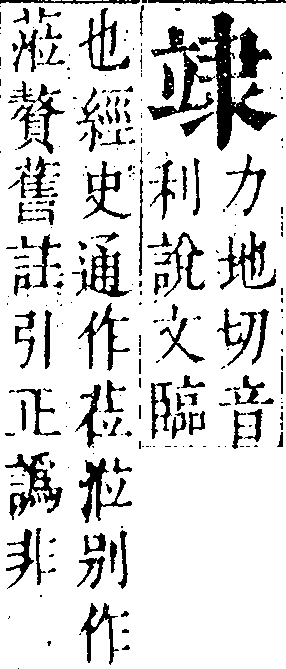 䇐
力地切音
利說文臨
也經史通作莅涖别作
蒞贅舊註引正譌非